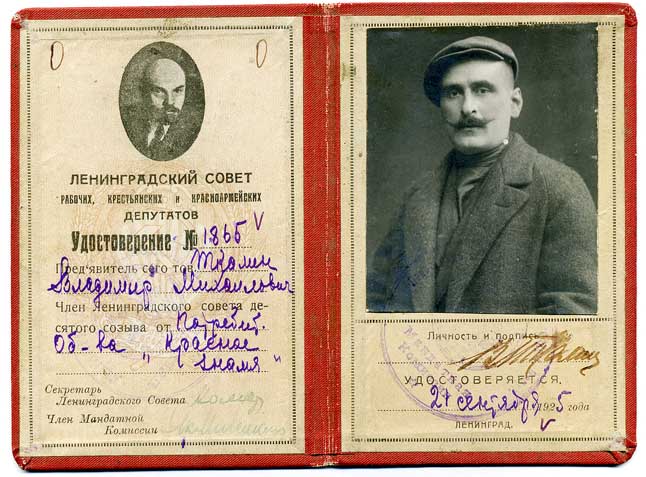 ЛЕНИНГРАДСКИЙ СОВЕТ
РАБОЧИХ, КРЕСТЬЯНСКИХ И КРАСНОАРМЕЙСКИХ
ДЕПУТАТОВ
Удостоверение № 1865
Пред'явитель сего тов.
Владимир Михайлович
Член Ленинградского совета де-
сятого созыва от Потребит.
Об-ва „Красное
Знамя"
Секретарь
Ленинградского Совета
Член Мандатной
Комиссии
Личность и подпись
УДОСТОВЕРЯЕТСЯ.
27 сентября 1925 года
ЛЕНИНГРАД.